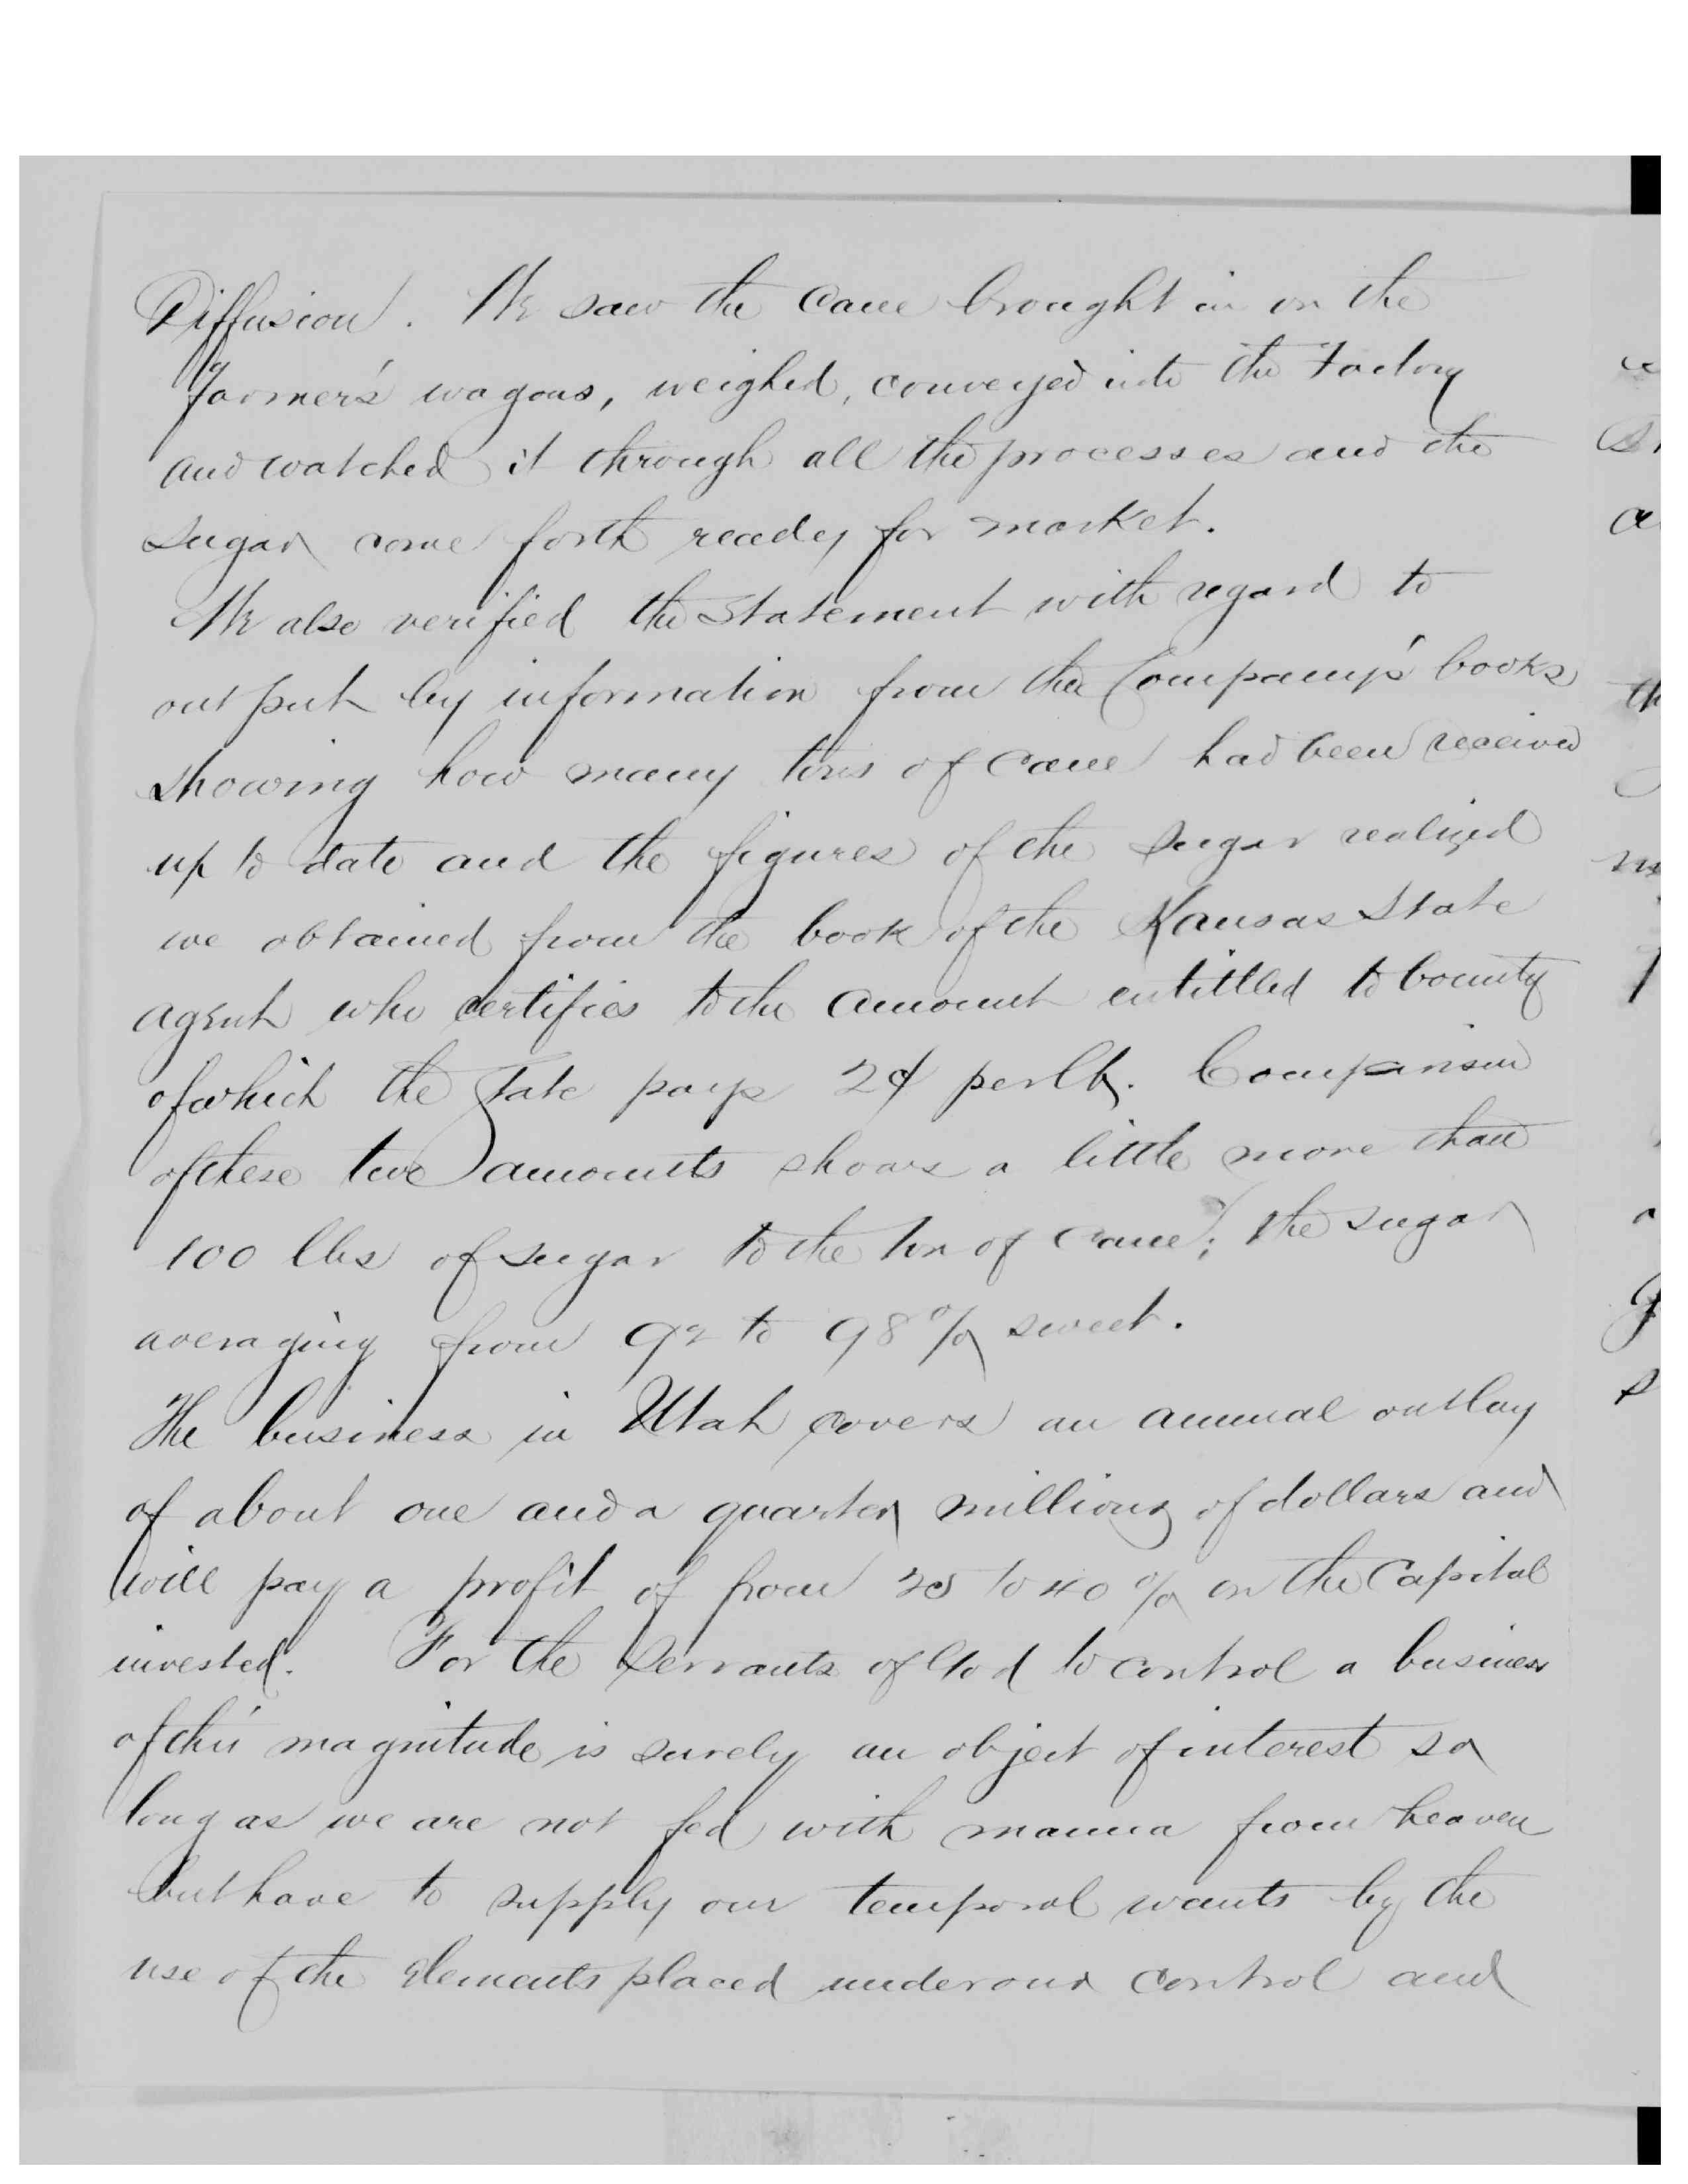 Diffusion. We saw the cane brought in on the
farmer's wagons, weighed, conveyed into the Factory
and watched it through all the processes and the
sugar come forth ready for market.
We also verified the Statement with regard to
out put by information from the Company's books
showing how many tons of cane had been received
up to date and the figures of the sugar realized
we obtained from the book of the Kansas State
agent who certifies to the amount entittled to bounty
of which the State pays 2¢ per lb. Comparison
of these two amounts shows a little more than
100 lbs of sugar to the ton of cane; the sugar
averaging from 92 to 98% sweet.
The business in Utah covers an annual outlay
of about one and a quarter millions of dollars and
will pay a profit of from 25 to 40% on the Capital
invested. For the Servants of God to control a business
of this magnitude is surely an object of interest so
long as we are not fed with manna from heaven
but have to supply our temporal wants by the
use of the elements placed under our control and